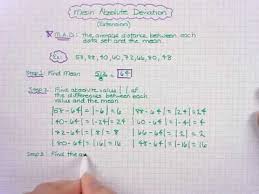 Mean Absolute Deviation
(Extension)
M.A.D: the average distance between each
data set and the mean.
Ex: 58, 88, 40, 60, 72, 66, 80, 48
Step 1: Find Mean 512/8 = 64
Step 2: Find absolute value | | of
the differences between each
value and the mean
|58-64|=|-6|=6 |88-64|=|24|=24
|40-64|=|-24|=24 |60-64|=|-4|=4
|72-64|=|8|=8 |66-64|=|2|=2
|80-64|=|16|=16 |48-64|=|-16|=16
Step 3: Find the